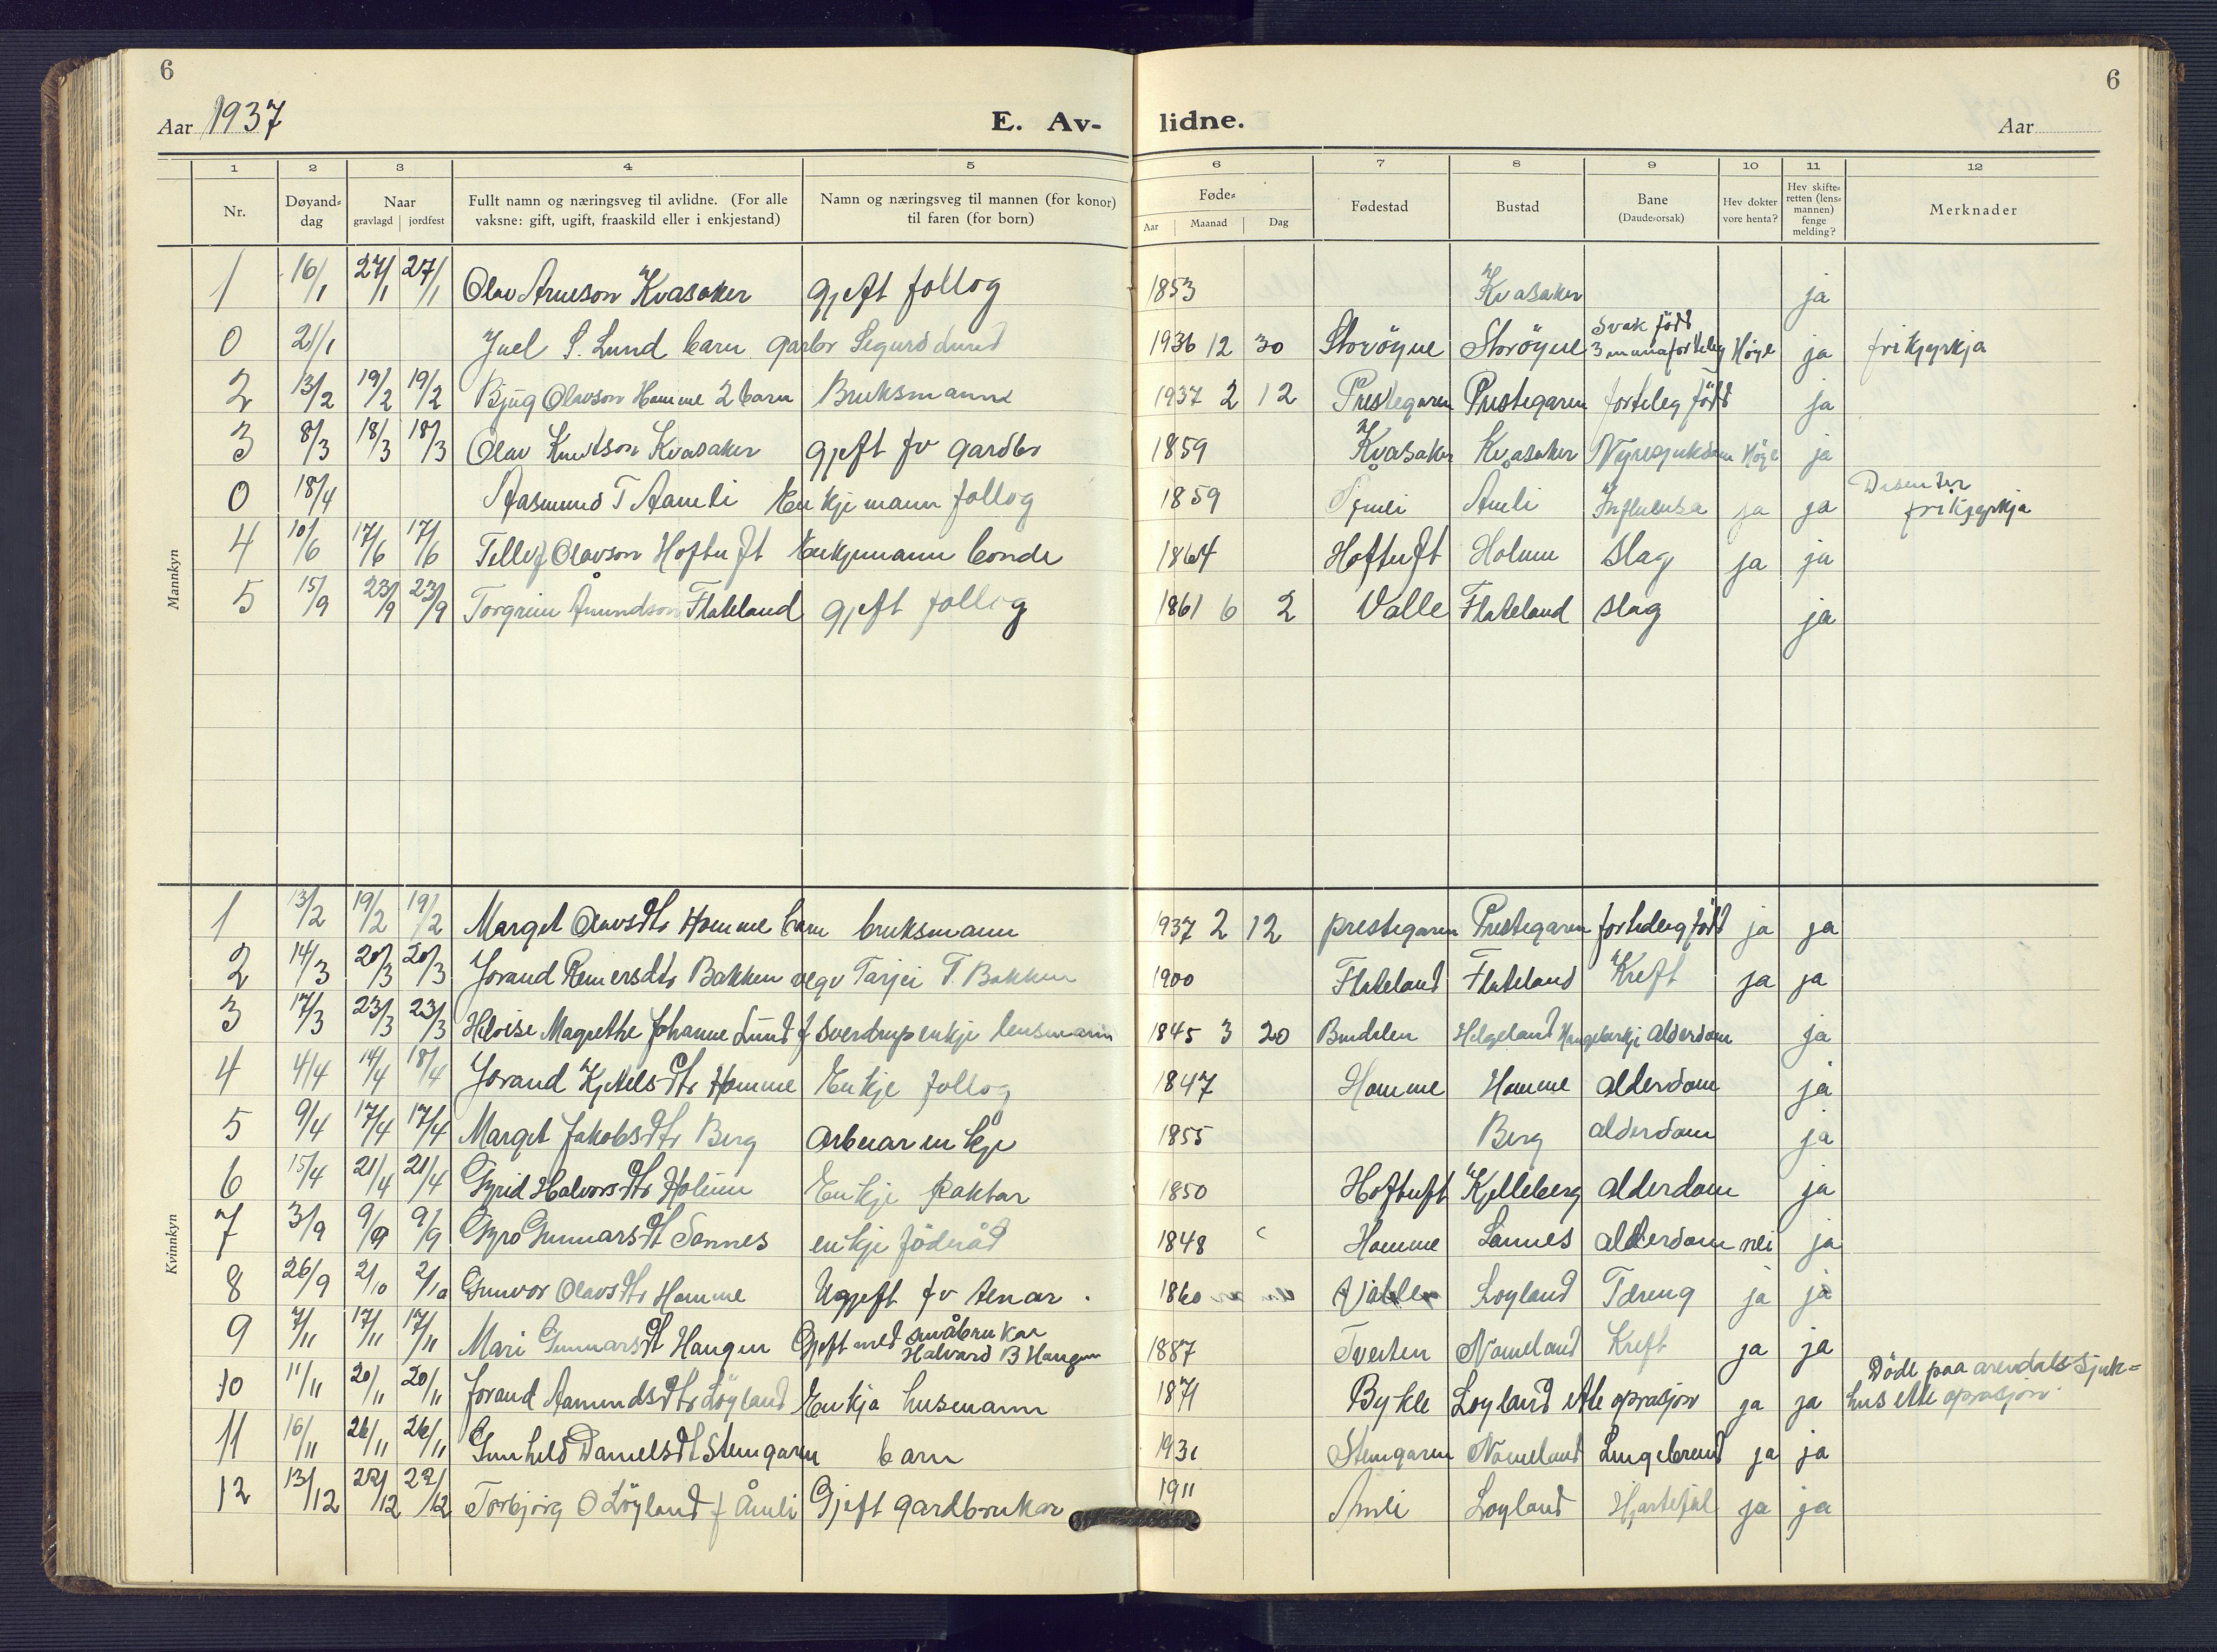 6
6
Aar 1937
E. Av-
lidne.
Aar
1 2 3 4 5 6 7 8 9 10 11 12
Nr.
Døyand-
dag
Naar
gravlagd jordfest
Fullt namn og næringsveg til avlidne. (For alle
vaksne: gift, ugift, fraaskild eller i enkjestand)
Namn og næringsveg til mannen (for konor)
til faren (for born)
Føde-
Aar Maanad Dag
Fødestad
Bustad
Bane
(Daude-orsak)
Hev dokter
vore henta?
Hev skifte-
retten (lens-
mannen)
fenge
melding?
Merknader
Mannkyn
1 16/1 27/1 27/1 Olav Arneson Kvasaker gjeft follog 1853 Kvasaker ja
0 21/1 Juel S. Lund barn garbr Sigurd Lund 1936 12 30 Storöyne Storöyne Svak född 3 mnna forteleg Höge ja frikjyrkja
2 13/2 19/2 19/2 Bjug Olavson Homme 2 barn Bruksmann 1937 2 12 Prestegaren Prestegaren forteleg född ja
3 8/3 18/3 18/3 Olav Knutson Kvasaker gjeft fv gardbr 1859 Kvasaker Kvasaker Nyresjukdom Höge ja
0 18/4 Aasmund T Aamli Enkjemann follog 1859 Åmli Influensa ja ja Disenter frikjyrkja
4 10/6 17/6 17/6 Tellef Olavson Hoftuft Enkjemann bonde 1864 Hoftuft Holum slag ja ja
5 15/9 23/9 23/9 Torgrim Åmundson Flateland gjeft follog 1861 6 2 Valle Flateland slag ja
Kvinnkyn
1 13/2 19/2 19/2 Marget Olavsdtr Homme barn bruksmann 1937 2 12 prestegaren Prestegaren forteleg född ja ja
2 14/3 20/3 20/3 Jorand Reiersdtr Bakken vegv Tarjei T. Bakken 1900 Flateland Flateland Kreft ja ja
3 17/3 23/3 23/3 Heloise Magrethe Johanne Lund f Sverdrup enkje lensmann 1845 3 20 Bindalen Helgeland Alderdom ja
4 4/4 14/4 18/4 Jorand Kjetelsdtr Homme Enkje follog 1847 Homme Homme alderdom ja
5 9/4 17/4 17/4 Marget Jakobsdtr Berg arbeiar enkje 1855 Berg alderdom ja
6 15/4 21/4 21/4 Gyrid Halvorsdtr Holum Enkje faktar 1850 Hoftuft Kjelleberg alderdom ja
7 3/9 9/9 9/9 Gyro Gunnarsdt Sannes enkje födråd 1848 Homme Sannes alderdom nei ja
8 26/9 2/10 2/10 Gunvor Olavsdtr Homme Ugjeft fv tenar 1860 Valle Loyland Tæreng ja ja
9 7/11 17/11 17/11 Mari Gunnarsdt Haugen Gjeft med småbrukar Halvard B Haugen 1887 Tveiten Nomeland Kreft ja ja
10 11/11 20/11 20/11 Jorand Aamundsdtr Löyland Enkja husmann 1871 Bykle Loyland ette oprasjon ja ja Döde paa arendals Sjuk=
hus ette oprasjon
11 16/11 26/11 26/11 Gunhild Danielsdt Steingaren barn 1931 Steingaren Nomeland Lungebrend ja ja
12 13/12 22/12 22/12 Torbjörg O Löyland f Åmli Gjeft gardbrukar 1911 Åmli Loyland Hjartefeil ja ja